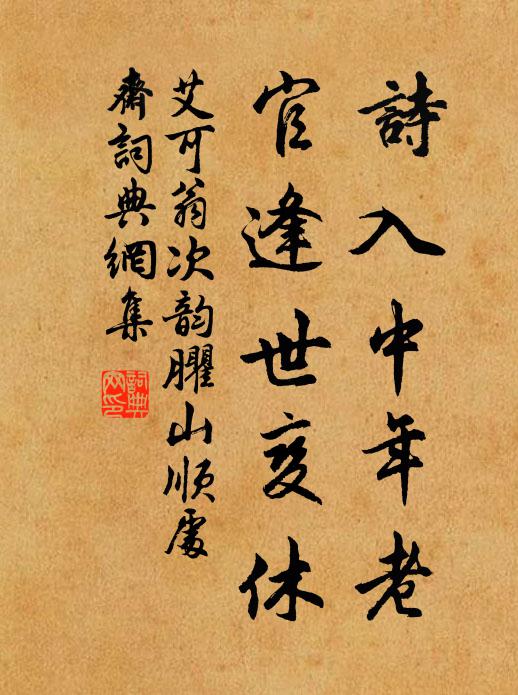 詩入中年老
官逢世变休
艾可翁次韵臞山順處
齋詞典網集
詞典網印